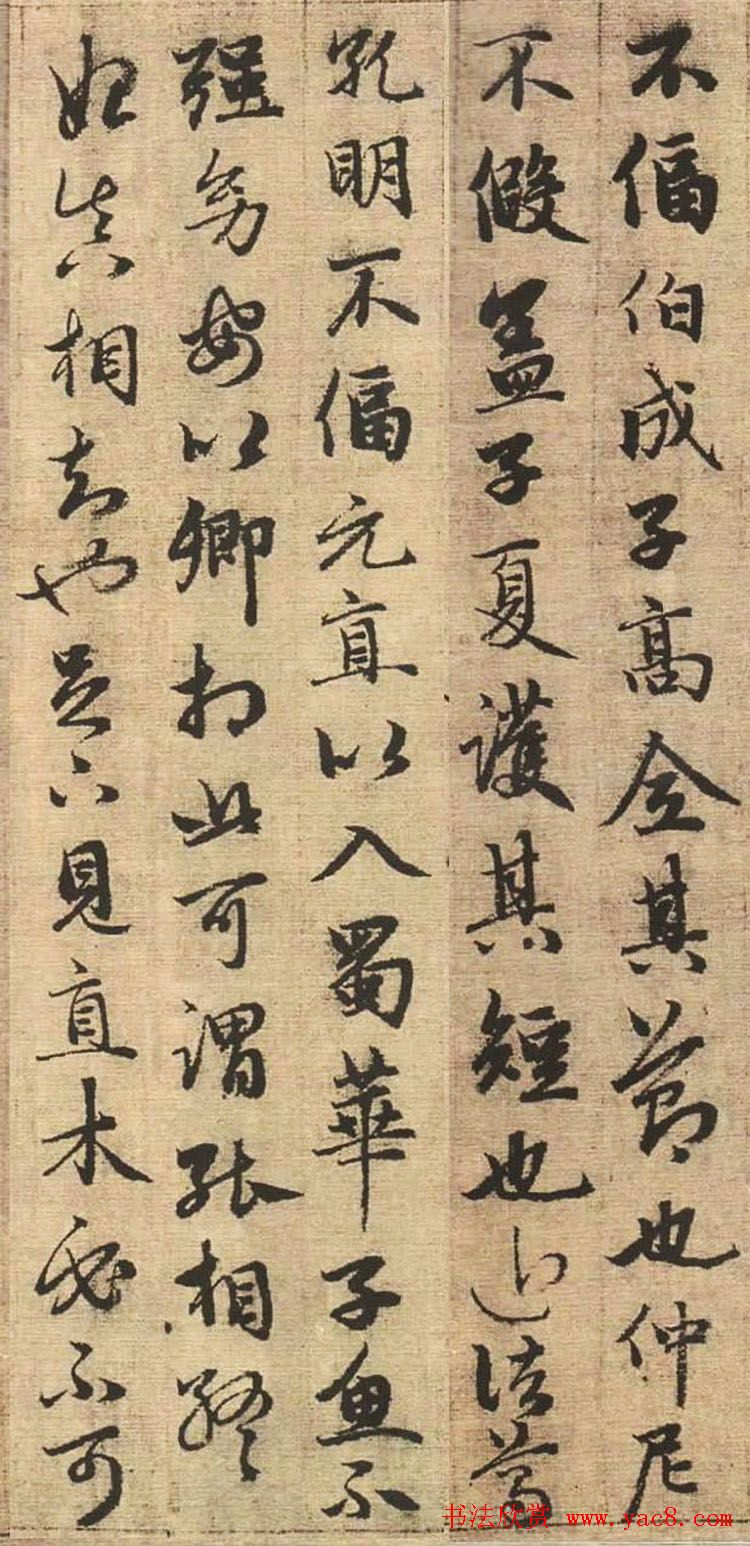 不偪伯成子高全其節也仲尼
不假盖子夏護其短也近諸葛
孔明不偪元直以入蜀華子魚不
强幼安以卿相此可謂能相終
始真相知也足下見直木必不可
书法欣赏 www.yac8.com